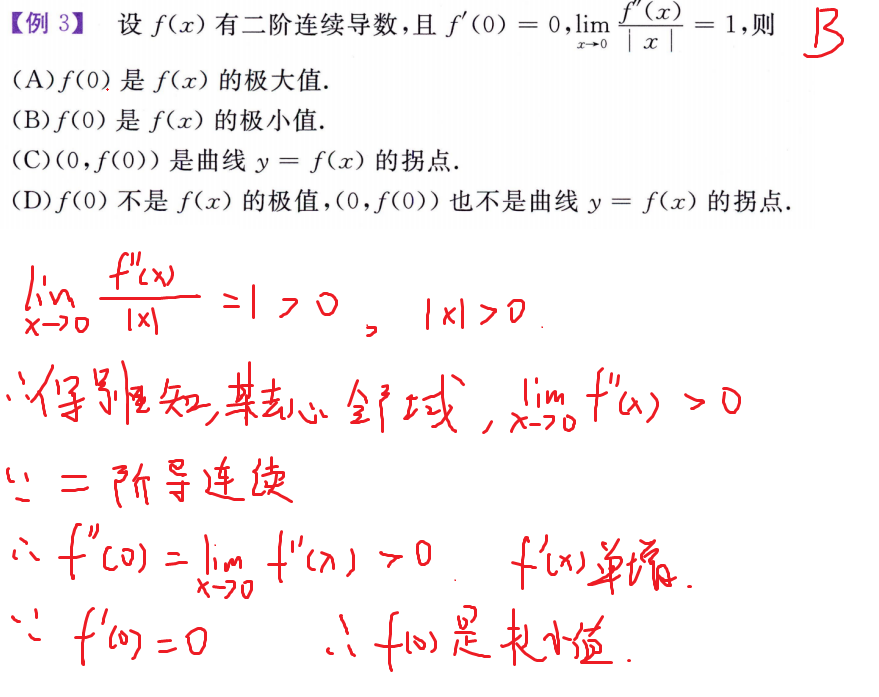 【例 3】 设 f(x) 有二阶连续导数,且 f′(0) = 0, lim_{x→0} f″(x)/|x| = 1,则 B
(A) f(0) 是 f(x) 的极大值.
(B) f(0) 是 f(x) 的极小值.
(C) (0, f(0)) 是曲线 y = f(x) 的拐点.
(D) f(0) 不是 f(x) 的极值, (0, f(0)) 也不是曲线 y = f(x) 的拐点.
lim_{x→0} f″(x)/|x| = 1 > 0, |x| > 0.
∴保号性知,某去心邻域, lim_{x→0} f″(x) > 0
∵ 二阶导连续
∴ f″(0) = lim_{x→0} f″(x) > 0. f′(x) 单增.
∵ f′(0) = 0 ∴ f(0) 是极小值.